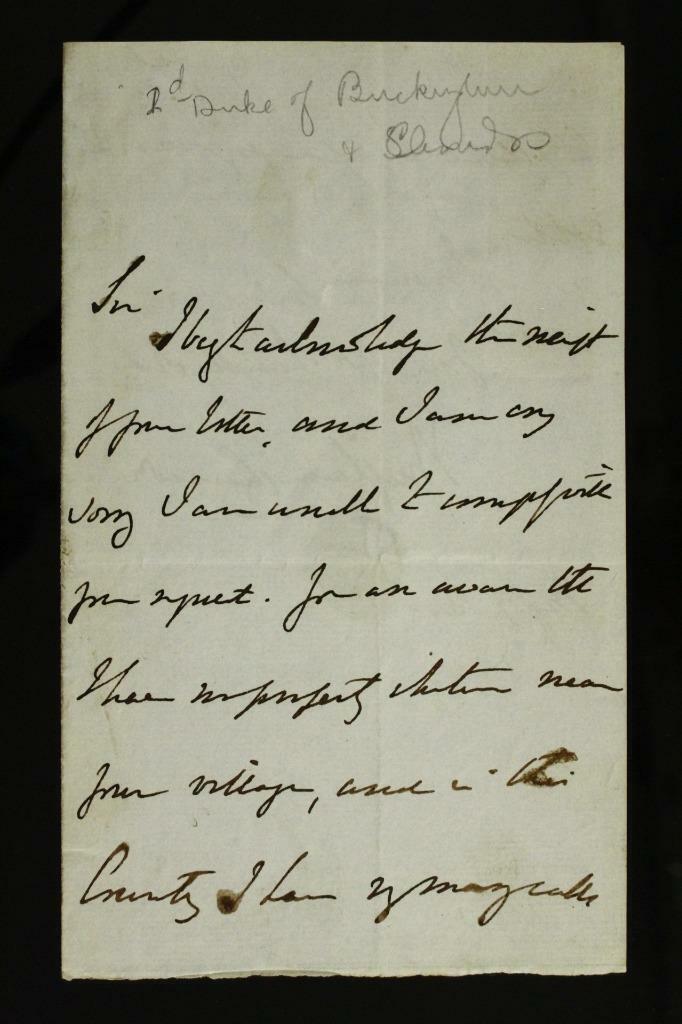 2d Duke of Buckingham
& Chandos
Sir
I beg to acknowledge the receipt
of your letter, and I am very
sorry I am unable to comply with
your request. You are aware that
I have no property whatever near
your village, and in this
County I have so many calls